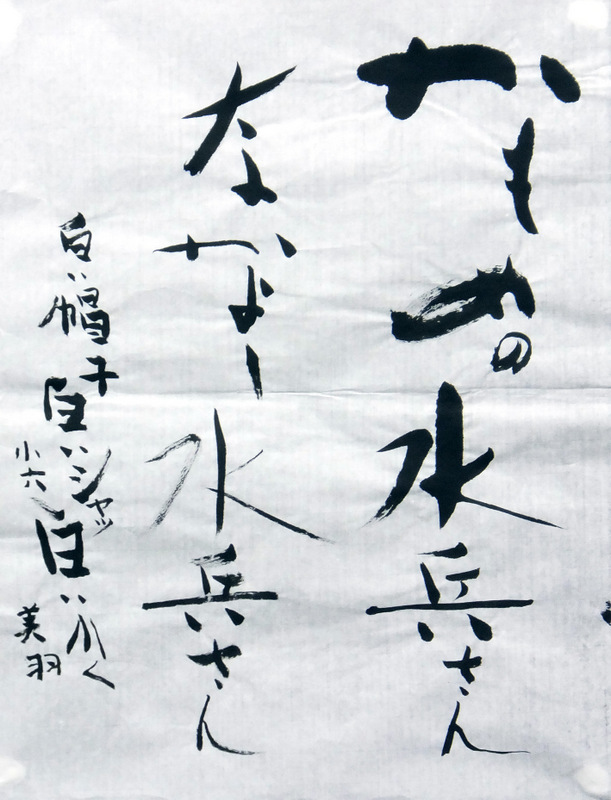 かもめの水兵さん
なかよし水兵さん
白い帽子白いシャツ白いふく
小六 美羽